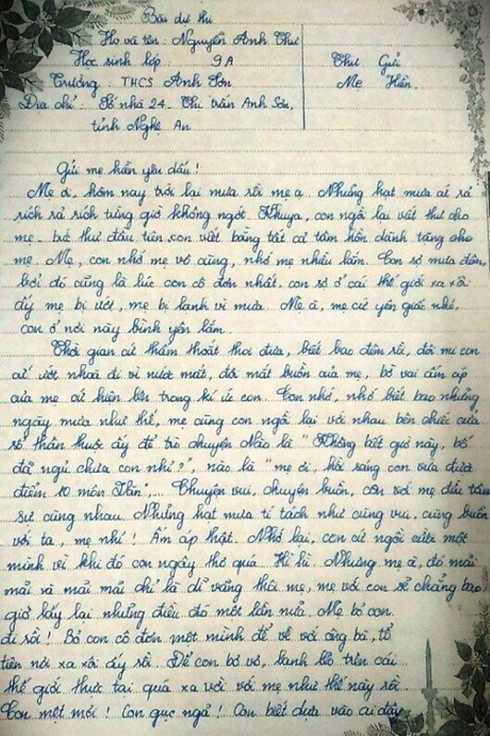 Bài dự thi
Họ và tên : Nguyễn Anh Thư
Học sinh lớp : 9A
Thư Gửi
Trường : THCS Anh Sơn
Mẹ Hiền.
Địa chỉ : Số nhà 24 - Thị trấn Anh Sơn,
tỉnh Nghệ An
Gửi mẹ hiền yêu dấu !
Mẹ ơi, hôm nay trời lại mưa rồi mẹ ạ. Những hạt mưa cứ rả
rích rả rích từng giờ không ngớt. Khuya, con ngồi lại viết thư cho
mẹ - bức thư đầu tiên con viết bằng tất cả tâm hồn dành tặng cho
mẹ. Mẹ, con nhớ mẹ vô cùng, nhớ mẹ nhiều lắm. Con sợ mưa đêm,
bởi đó cũng là lúc con cô đơn nhất, con sợ ở cái thế giới xa xôi
ấy mẹ bị ướt, mẹ bị lạnh vì mưa. Mẹ à, mẹ cứ yên giấc nhé,
con ở nơi này bình yên lắm.
Thời gian cứ thấm thoắt thoi đưa, biết bao đêm rồi, đôi mi con
cứ ướt nhoà đi vì nước mắt, đôi mắt buồn của mẹ, bờ vai ấm áp
của mẹ cứ hiện lên trong kí ức con. Con nhớ, nhớ biết bao những
ngày mưa như thế, mẹ cùng con ngồi lại với nhau bên chiếc cửa
sổ thân thuộc ấy để trò chuyện. Nào là "Không biết giờ này, bố
đã ngủ chưa con nhỉ ?", nào là "mẹ ơi, hồi sáng con vừa được
điểm 10 môn Văn",... Chuyện vui, chuyện buồn, con với mẹ đều tâm
sự cùng nhau. Những hạt mưa tí tách như cùng vui, cùng buồn
với ta, mẹ nhỉ ! Ấm áp thật. Nhớ lại, con cứ ngồi cười một
mình vì khi đó con ngây thơ quá. Hì hì. Nhưng mẹ à, đó mãi
mãi và mãi mãi chỉ là dĩ vãng thôi mẹ, mẹ với con sẽ chẳng bao
giờ lấy lại những điều đó một lần nữa. Mẹ bỏ con
đi rồi ! Bỏ con cô đơn một mình để về với ông bà, tổ
tiên nơi xa xôi ấy rồi. Để con bơ vơ, lạnh lẽo trên cái
thế giới thực tại quá xa vời với mẹ như thế này rồi
Con mệt mỏi ! Con gục ngã ! Con biết dựa vào ai đây